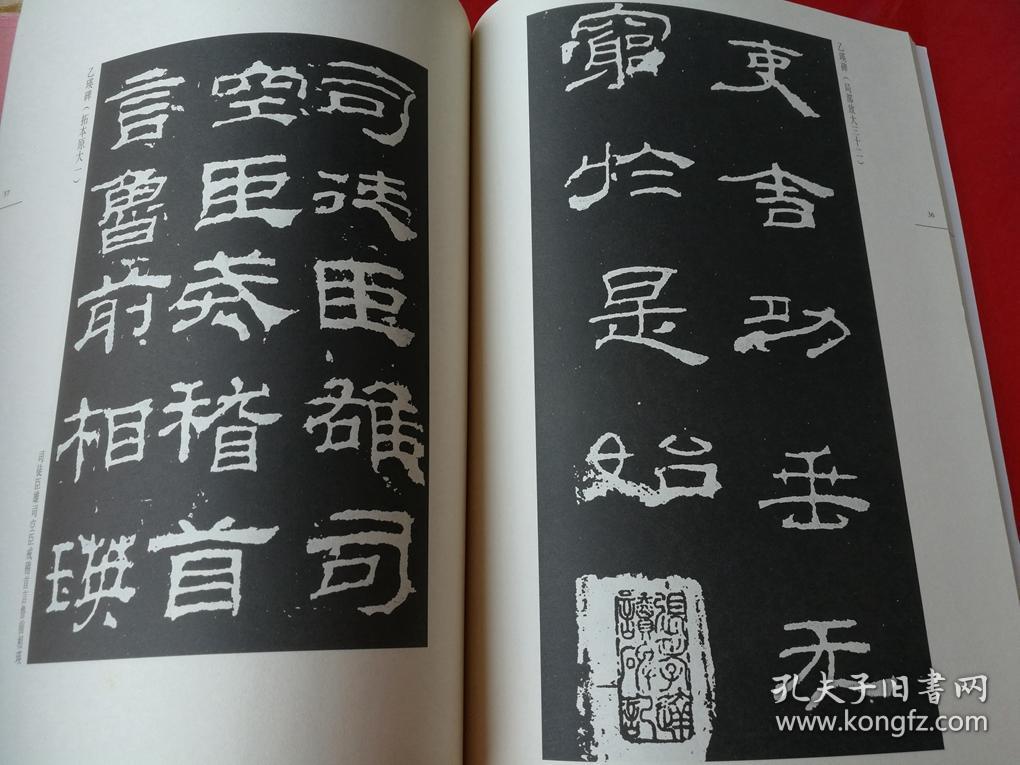 乙瑛碑（局部放大三十二）
36
吏舍功垂无
窮於是始
司徒臣雄司
空臣戒稽首
言魯前相瑛
乙瑛碑（拓本原大一）
37
司徒臣雄司空臣戒稽首言魯前相瑛
孔夫子旧書网
www.kongfz.com